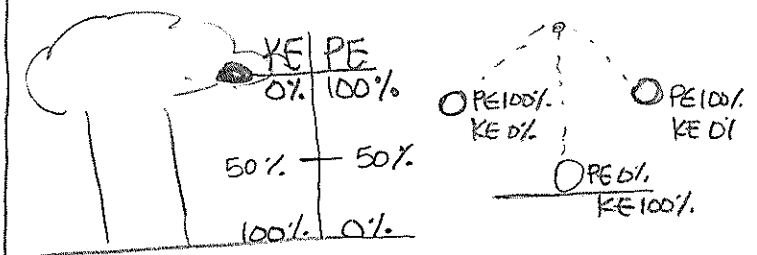 KE PE
0% 100%
50% 50%
100% 0%
PE100%
KE 0%
PE100%
KE 0%
PE 0%
KE 100%